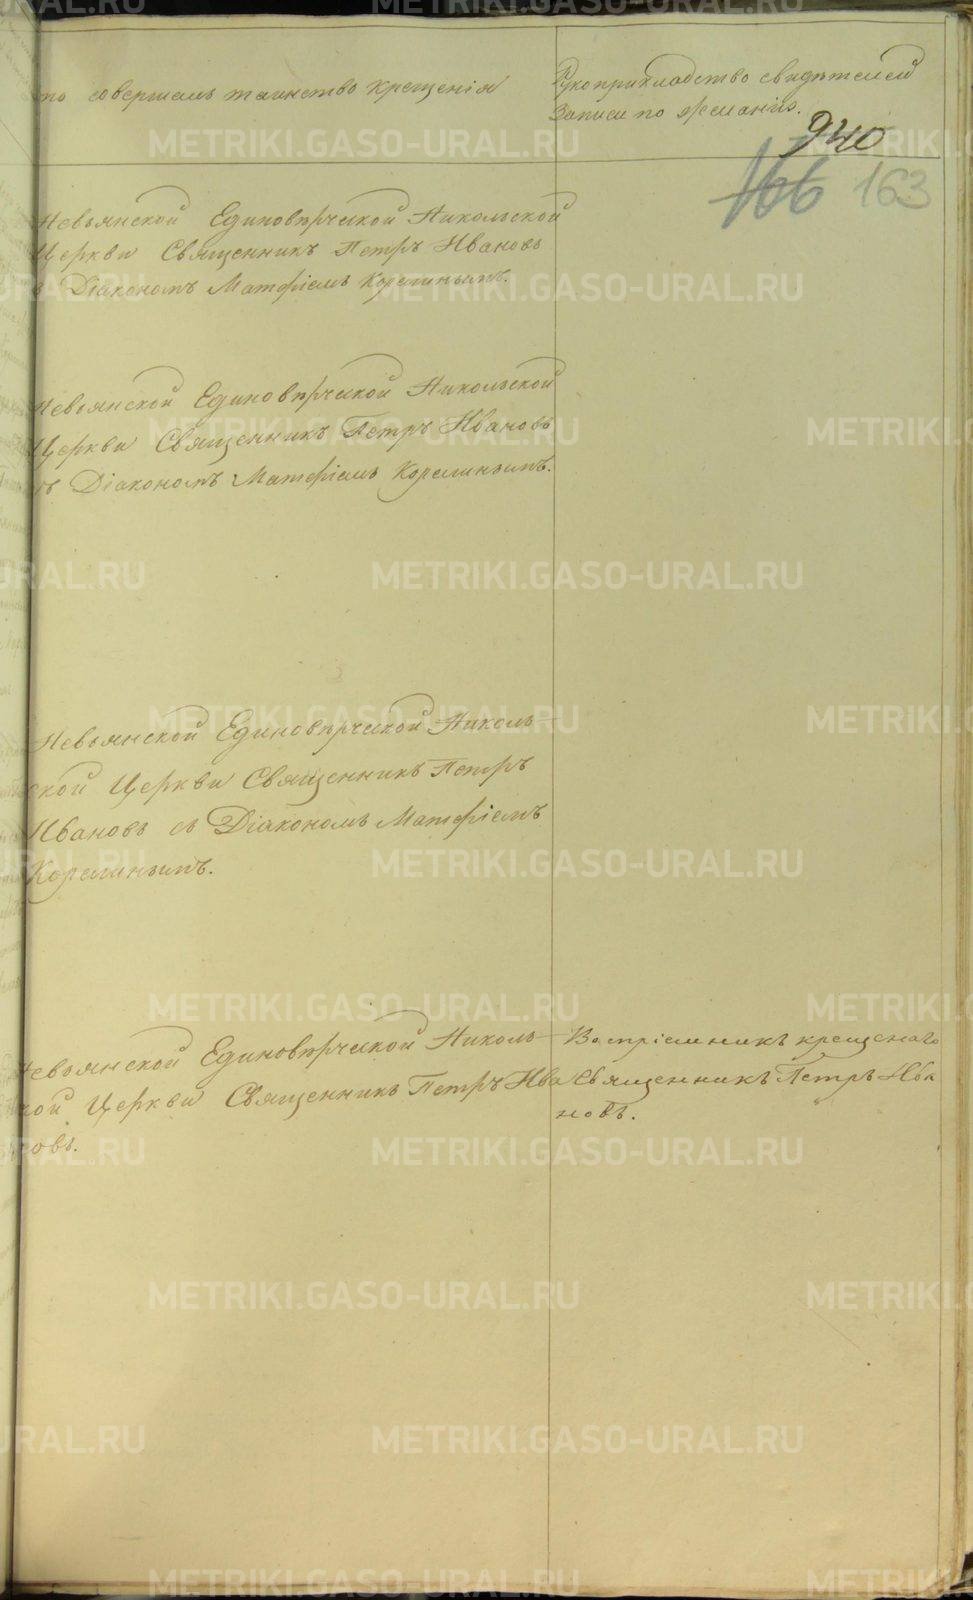 то совершалъ таинство крещенія
Рукоприкладство свидѣтелей
записи по желанію.
940
166 163
Невьянской Единовѣрческой Никольской
Церкви Священникъ Петръ Ивановъ
съ Діакономъ Матфіемъ Корелинымъ.
Невьянской Единовѣрческой Никольской
Церкви Священникъ Петръ Ивановъ
съ Діакономъ Матфіемъ Корелинымъ.
Невьянской Единовѣрческой Николь-
ской Церкви Священникъ Петръ
Ивановъ съ Діакономъ Матфіемъ
Корелинымъ.
Невьянской Единовѣрческой Николь-
кой Церкви Священникъ Петръ Ива
новъ.
Воспріемникъ крещенаго
Священникъ Петръ Ива
новъ.
METRIKI.GASO-URAL.RU